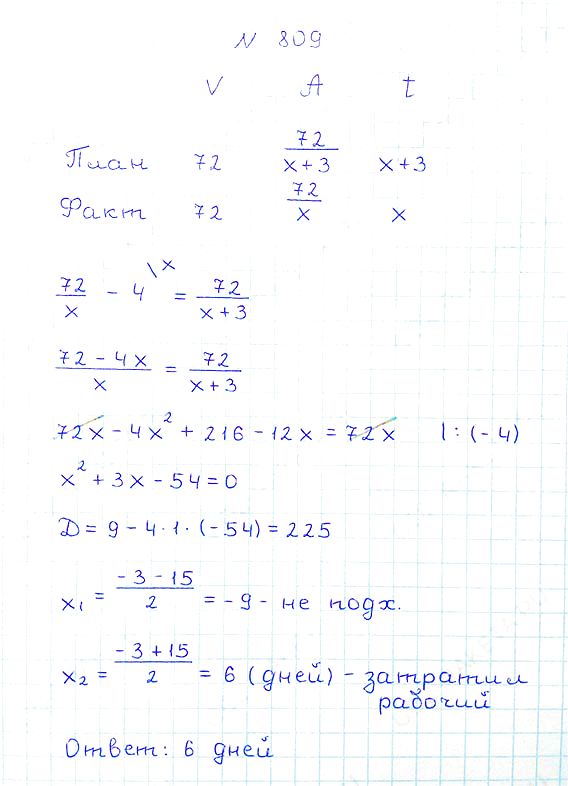 N 809
V A t
План 72 72/(x+3) x+3
Факт 72 72/x x
72/x - 4\x = 72/(x+3)
(72-4x)/x = 72/(x+3)
72x - 4x² + 216 - 12x = 72x |:(-4)
x² + 3x - 54 = 0
D = 9 - 4·1·(-54) = 225
x₁ = (-3-15)/2 = -9 - не подх.
x₂ = (-3+15)/2 = 6 (дней) - затратил
рабочий
Ответ: 6 дней